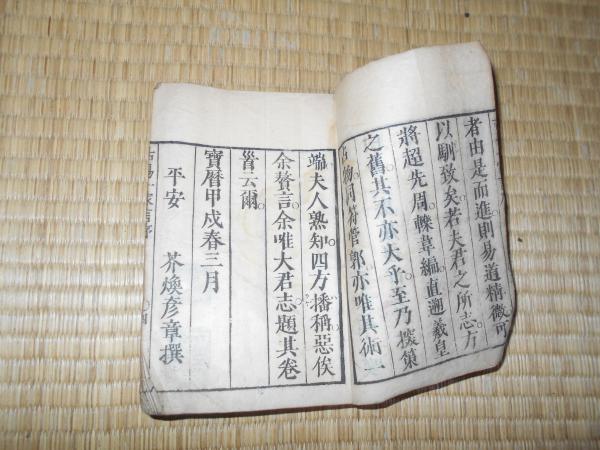 者由是而進則易道精微可
以馴致矣若夫君之所志方
將超先周轢韋編直遡羲皇
之舊其不亦大乎至乃揲策
占物同符管郭亦唯其術一
端夫人孰知四方播稱惡俟
余贅言余唯大君志題其卷
首云爾
寶曆甲戌春三月
平安 芥煥彦章撰